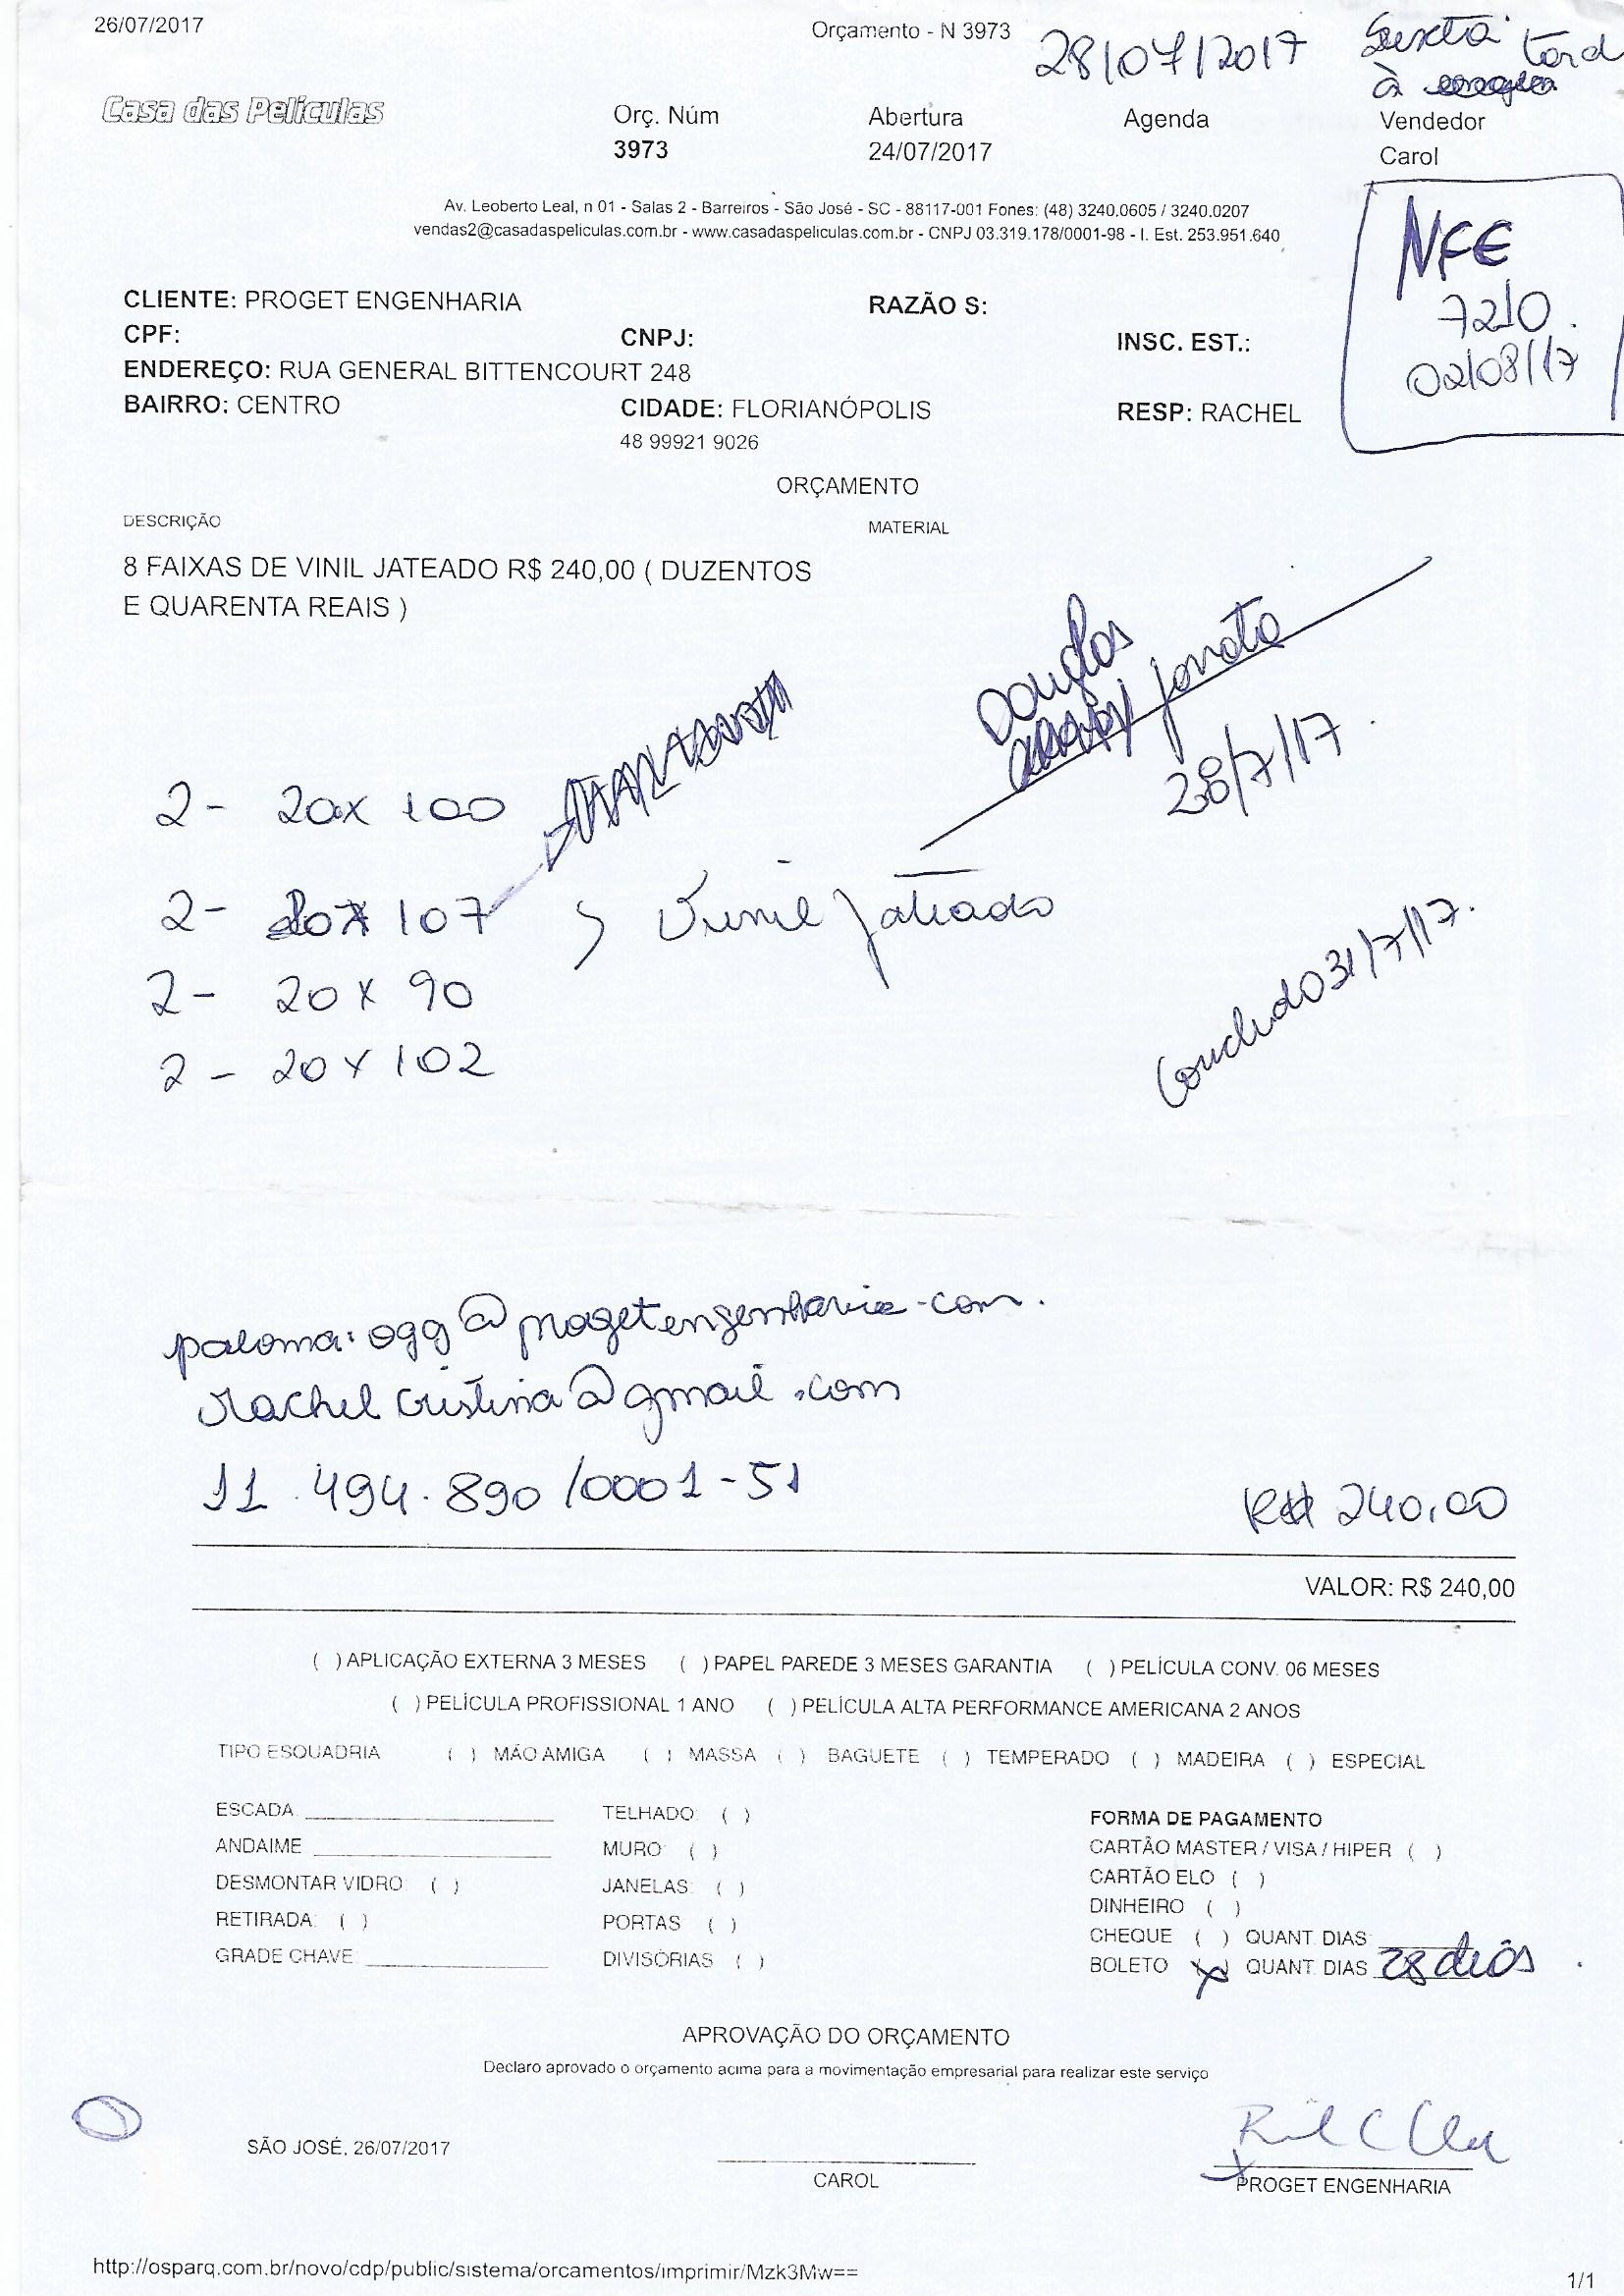 26/07/2017 Orçamento - N 3973
28/07/2017 Sexta tard
à
Casa das Películas Orç. Núm Abertura Agenda Vendedor
3973 24/07/2017 Carol
Av. Leoberto Leal, n 01 - Salas 2 - Barreiros - São José - SC - 88117-001 Fones: (48) 3240.0605 / 3240.0207
vendas2@casadaspeliculas.com.br - www.casadaspeliculas.com.br - CNPJ 03.319.178/0001-98 - I. Est. 253.951.640
NFE
7210
02/08/17
CLIENTE: PROGET ENGENHARIA RAZÃO S:
CPF: CNPJ: INSC. EST.:
ENDEREÇO: RUA GENERAL BITTENCOURT 248
BAIRRO: CENTRO CIDADE: FLORIANÓPOLIS RESP: RACHEL
48 99921 9026
ORÇAMENTO
DESCRIÇÃO MATERIAL
8 FAIXAS DE VINIL JATEADO R$ 240,00 ( DUZENTOS
E QUARENTA REAIS )
Douglas
Jonata
28/7/17.
2 - 20x 100
2 - 20x 107 Vinil Jateado
2 - 20 x 90
2 - 20 x 102
Concluido 31/7/17.
paloma: ogg@progetengenharia.com.
rachelcristina@gmail.com
11.494.890/0001-51
R$ 240,00
VALOR: R$ 240,00
( ) APLICAÇÃO EXTERNA 3 MESES ( ) PAPEL PAREDE 3 MESES GARANTIA ( ) PELÍCULA CONV. 06 MESES
( ) PELÍCULA PROFISSIONAL 1 ANO ( ) PELÍCULA ALTA PERFORMANCE AMERICANA 2 ANOS
TIPO ESQUADRIA ( ) MÃO AMIGA ( ) MASSA ( ) BAGUETE ( ) TEMPERADO ( ) MADEIRA ( ) ESPECIAL
ESCADA TELHADO: ( ) FORMA DE PAGAMENTO
ANDAIME MURO: ( ) CARTÃO MASTER / VISA / HIPER ( )
DESMONTAR VIDRO: ( ) JANELAS: ( ) CARTÃO ELO ( )
RETIRADA: ( ) PORTAS ( ) DINHEIRO ( )
GRADE CHAVE: DIVISÓRIAS ( ) CHEQUE ( ) QUANT. DIAS
BOLETO (x) QUANT. DIAS 28 dias.
APROVAÇÃO DO ORÇAMENTO
Declaro aprovado o orçamento acima para a movimentação empresarial para realizar este serviço
SÃO JOSÉ, 26/07/2017
CAROL PROGET ENGENHARIA
http://osparq.com.br/novo/cdp/public/sistema/orcamentos/imprimir/Mzk3Mw== 1/1